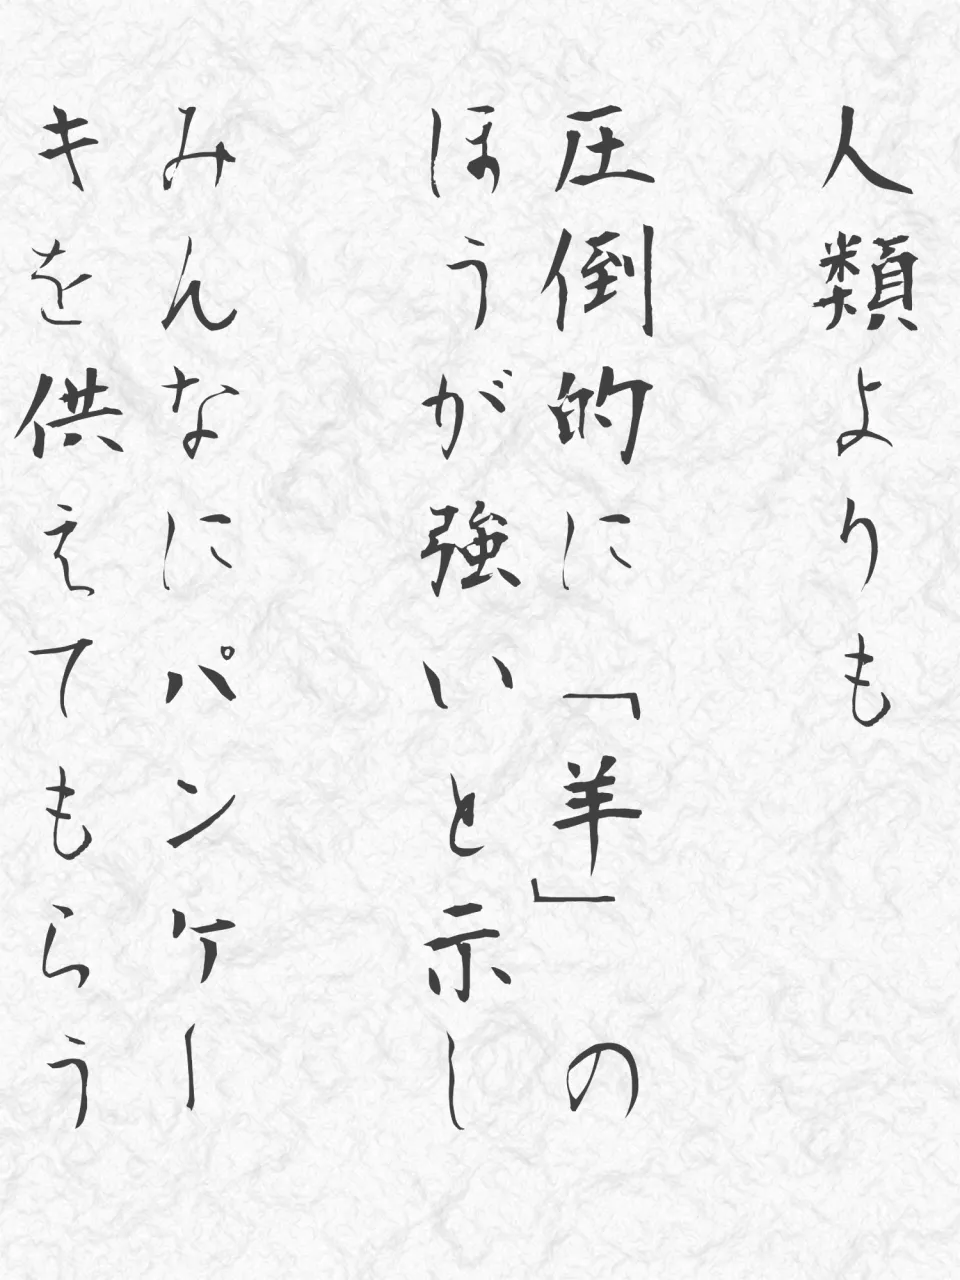 人類よりも
圧倒的に「羊」の
ほうが強いと示し
みんなにパンケー
キを供えてもらう